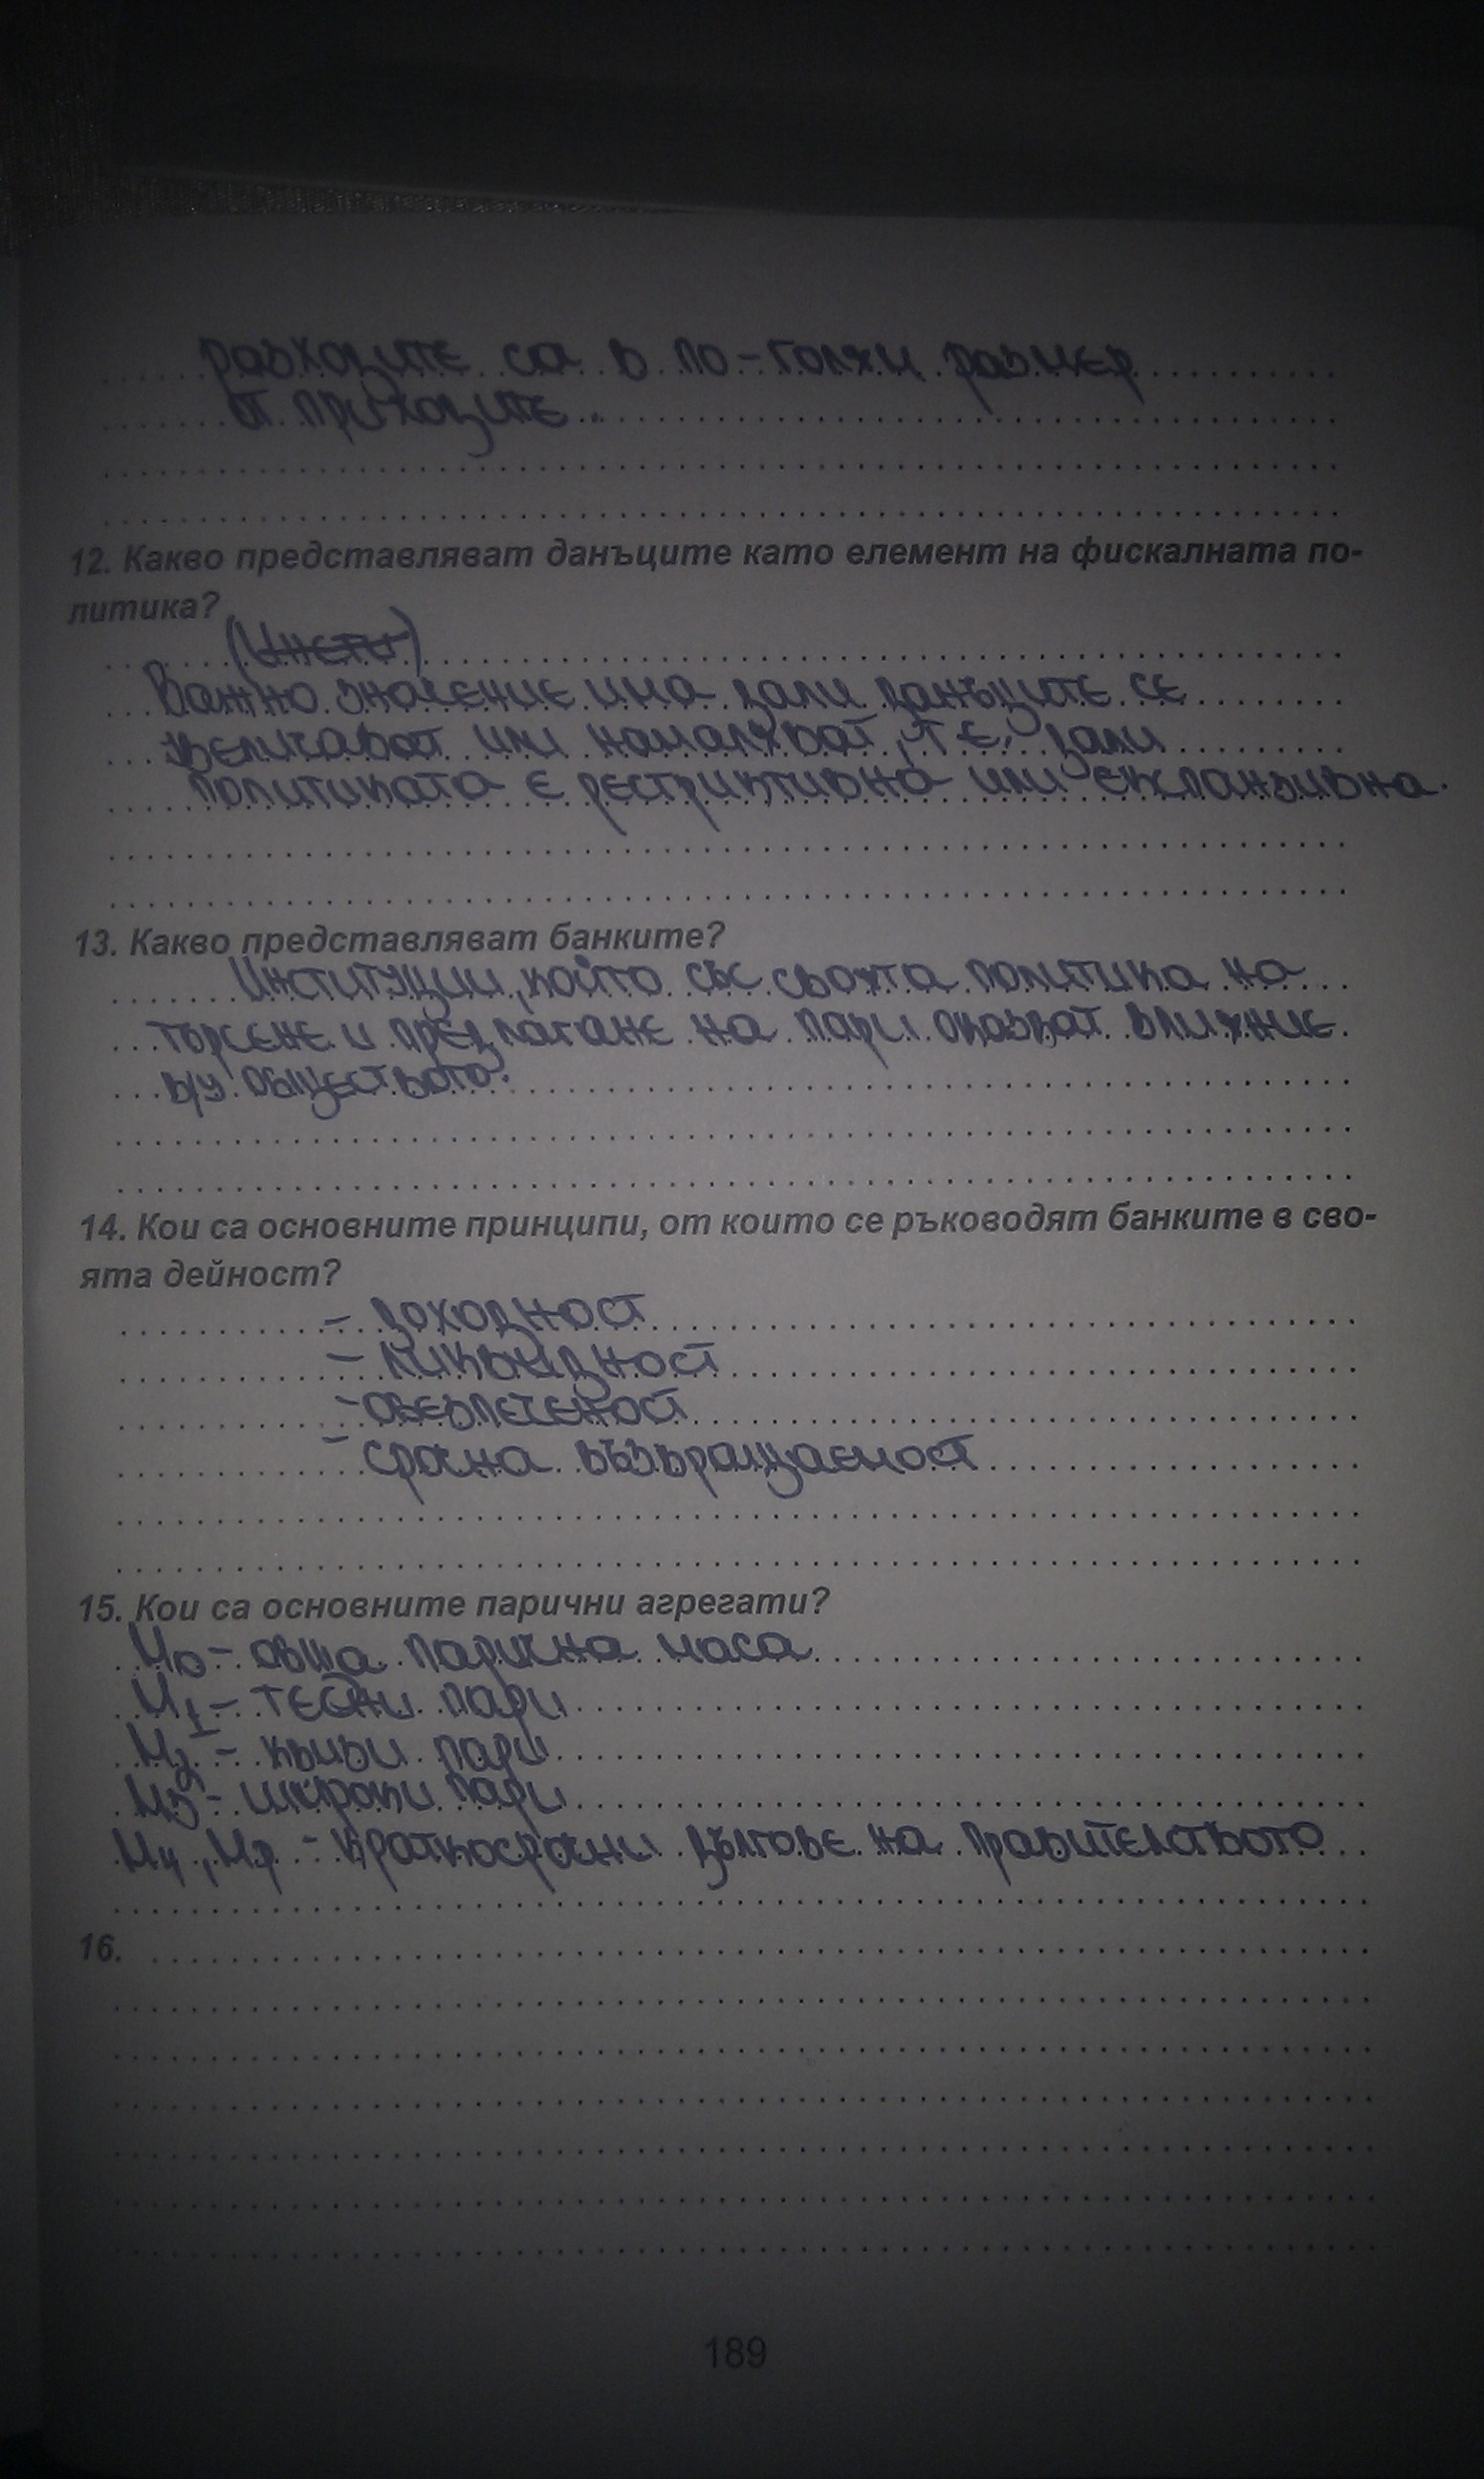 разходите са в по-голям размер
от приходите.
12. Какво представляват данъците като елемент на фискалната по-
литика?
Важно значение има дали данъците се
увеличават или намаляват, т.е. дали
политиката е рестриктивна или експанзивна.
13. Какво представляват банките?
Институции, който със своята политика на
търсене и предлагане на пари оказват влияние
в/у обществото.
14. Кои са основните принципи, от които се ръководят банките в сво-
ята дейност?
- доходност
- ликвидност
- обезпеченост
- срочна възвращаемост
15. Кои са основните парични агрегати?
М0 - обща парична маса
М1 - тесни пари
М2 - квази пари
М3 - широки пари
М4, - краткосрочни дългове на правителството
16.
189